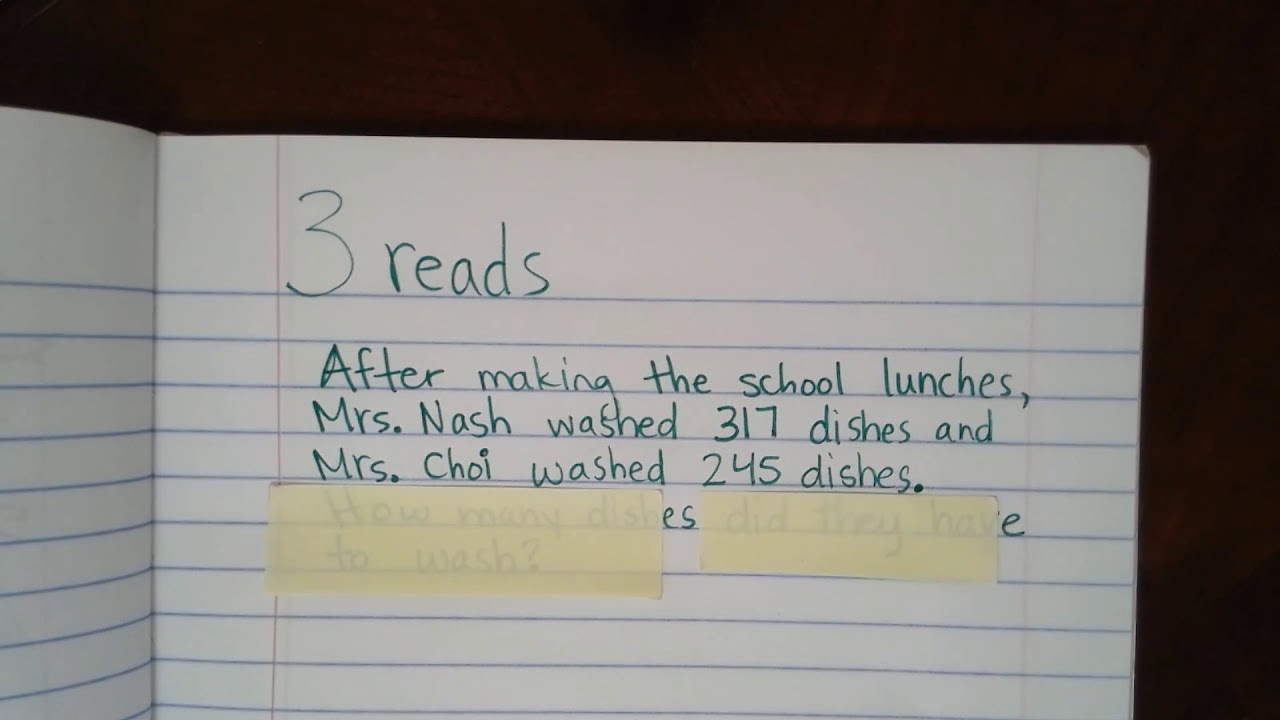 3 reads
After making the school lunches,
Mrs. Nash washed 317 dishes and
Mrs. Choi washed 245 dishes.
How many dishes did they have
to wash?